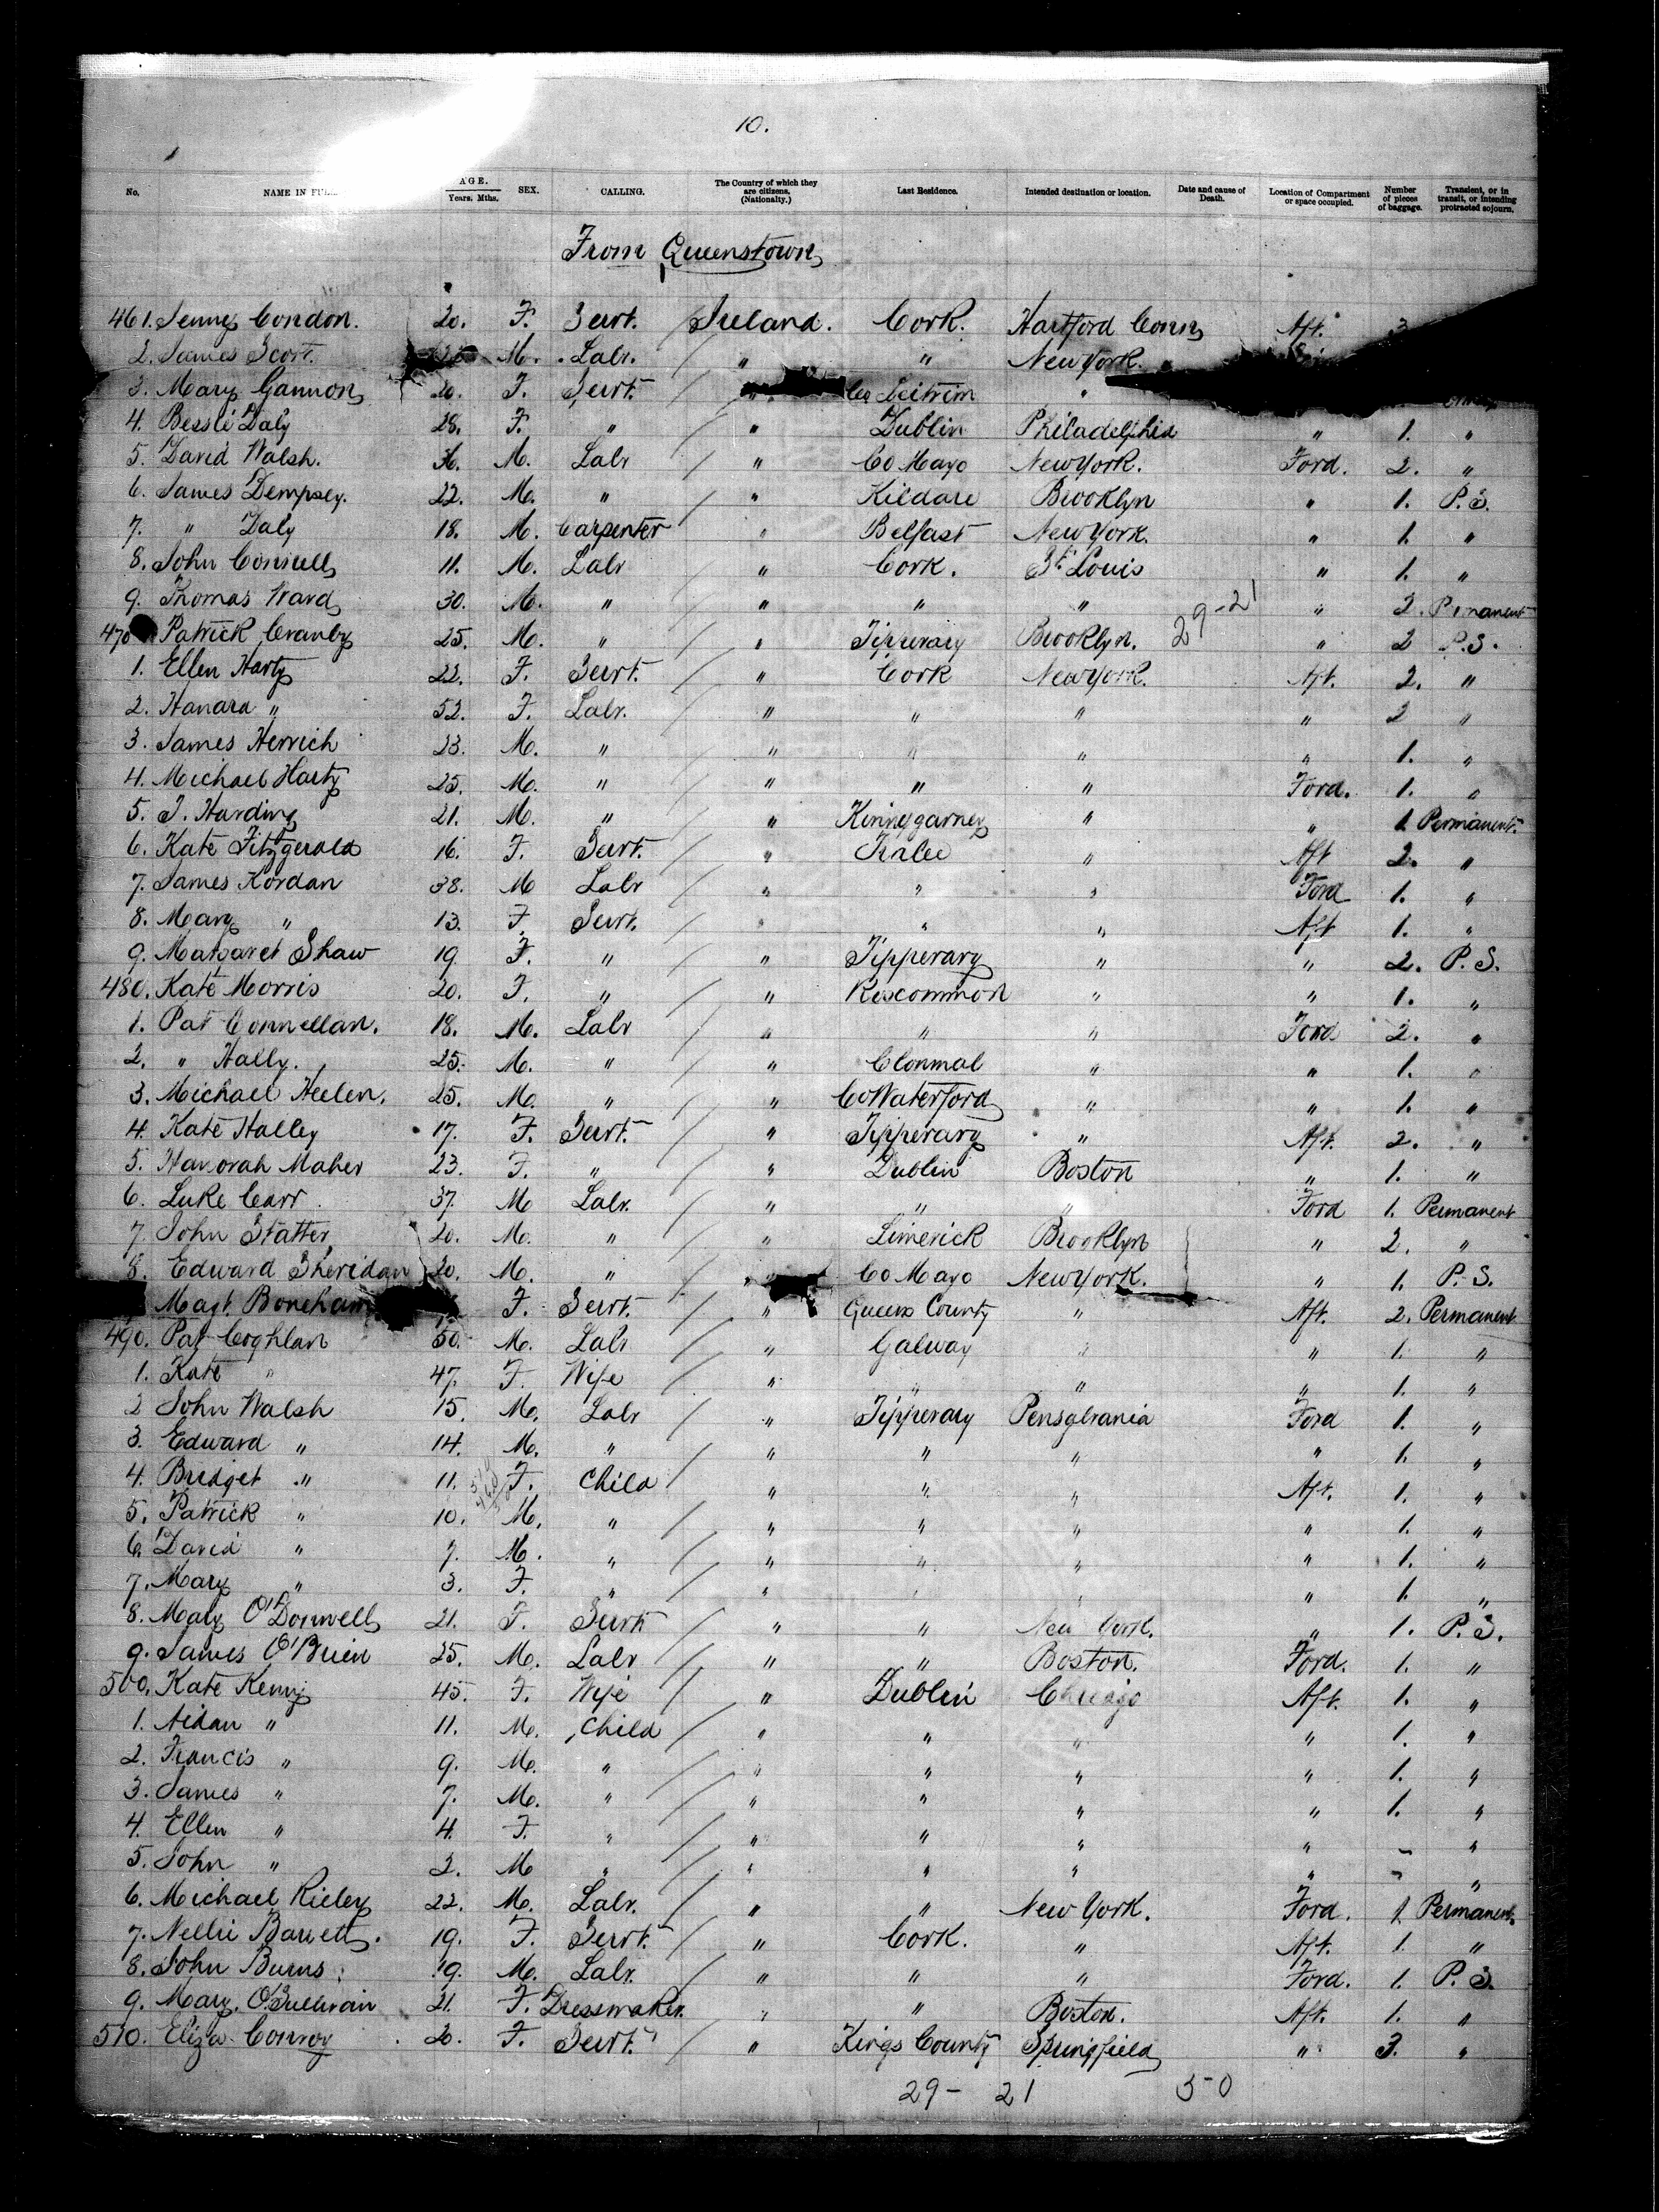 10.
No. NAME IN FULL. AGE. Years. Mths. SEX. CALLING. The Country of which they are citizens, (Nationalty.) Last Residence. Intended destination or location. Date and cause of Death. Location of Compartment or space occupied. Number of pieces of baggage. Transient, or in transit, or intending protracted sojourn.
From Queenstown
461. Jenny Condon. 20. F. Servt. Ireland. Cork. Hartford Conn Aft. 3
2. James Scott. M. Labr. " " New York.
3. Mary Gannon 20. F. Servt. " Co Leitrim "
4. Bessie Daly 28. F. " " Dublin Philadelphia " 1. "
5. David Walsh. 36. M. Labr " Co Mayo New York. Ford. 2. "
6. James Dempsey. 22. M. " " Kildare Brooklyn " 1. P.S.
7. " Daly 18. M. Carpenter " Belfast New York. " 1. "
8. John Connell 11. M. Labr " Cork. St Louis " 1. "
9. Thomas Ward 30. M. " " " " 29-21 " 2. Pimanent
470 Patrick Cranby 25. M. " " Tipperary Brooklyn. " 2 P.S.
1. Ellen Harty 22. F. Servt. " Cork New York. Aft. 2. "
2. Hanara " 52. F. Labr. " " " " 2 "
3. James Herrich 23. M. " " " " " 1. "
4. Michael Harty 25. M. " " " " Ford. 1. "
5. J. Harding 21. M. " " Kinnygarney " " 1. Permanent.
6. Kate Fitzgerald 16. F. Servt. " Tralee " Aft 2. "
7. James Kordan 38. M Labr " " " Ford 1. "
8. Mary " 13. F. Servt. " " " Aft 1. "
9. Margaret Shaw 19. F. " " Tipperary " " 2. P.S.
480. Kate Morris 20. F. " " Roscommon " " 1. "
1. Pat Connellan. 18. M. Labr " " " Ford 2. "
2. " Hally. 25. M. " " Clonmal " " 1. "
3. Michael Heelen. 25. M. " " Co Waterford " " 1. "
4. Kate Halley 17. F. Servt. " Tipperary " Aft. 2. "
5. Hanorah Maher 23. F. " " Dublin Boston " 1. "
6. Luke Carr 37. M Labr. " " " Ford 1. Permanent
7. John Statter 20. M. " " Limerick Brooklyn " 2. "
8. Edward Sheridan 20. M. " " Co Mayo New York. " 1. P.S.
Magt. Boneham F. Servt. " Queens County " Aft. 2. Permanent
490. Pat Coghlan 50. M. Labr " Galway " " 1. "
1. Kate " 47. F. Wife " " " " 1. "
2 John Walsh 15. M. Labr " Tipperary Pensylvania Ford 1. "
3. Edward " 14. M. " " " " " 1. "
4. Bridget " 11. F. Child " " " Aft. 1. "
5. Patrick " 10. M. " " " " " 1. "
6. David " 7. M. " " " " " 1. "
7. Mary " 3. F. " " " " " 1. "
8. Mary O'Donnell 21. F. Servt " " New York. " 1. P.S.
9. James O'Brien 25. M. Labr " " Boston. Ford. 1. "
500. Kate Kenny 45. F. Wife " Dublin Chicago Aft. 1. "
1. Aidan " 11. M. Child " " " " 1. "
2. Francis " 9. M. " " " " " 1. "
3. James " 7. M. " " " " " 1. "
4. Ellen " 4. F. " " " " " - "
5. John " 2. M " " " " " - "
6. Michael Rieley 22. M. Labr. " " New York. Ford. 1 Permanent.
7. Nellie Barrett. 19. F. Servt. " Cork. " Aft. 1. "
8. John Burns. 19. M. Labr. " " " Ford. 1. P.S.
9. Mary O'Sullivan 21. F. Dressmaker. " " Boston. Aft. 1. "
510. Eliza Conroy 20. F. Servt. " Kings County Springfield " 3. "
29- 21 50